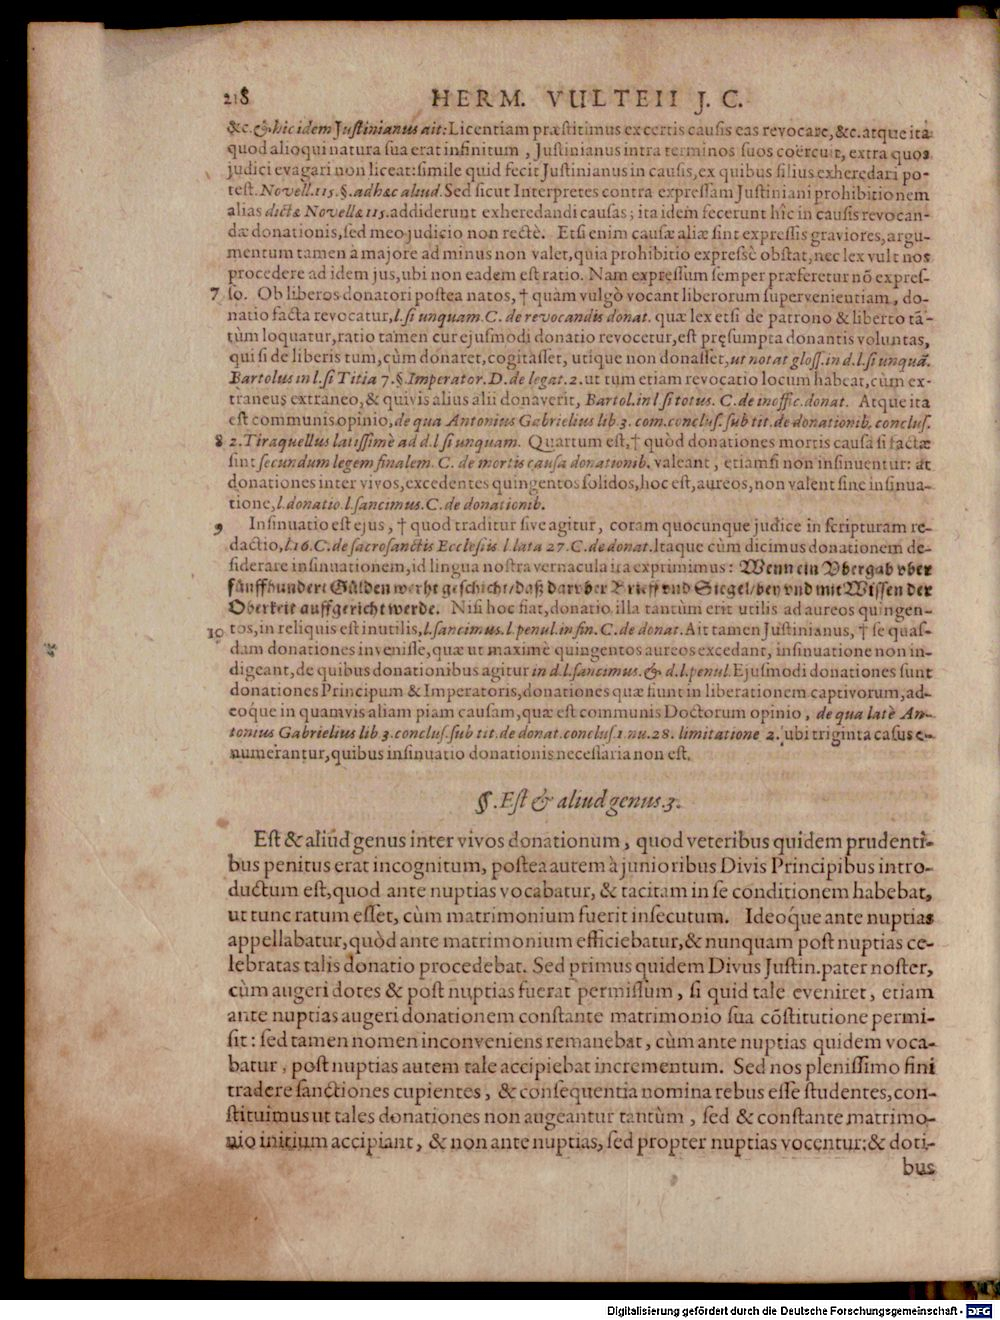 218 HERM. VULTEII J. C.
&c. & hic idem Justinianus ait: Licentiam præstitimus ex certis causis eas revocare, &c. atque ita
quod alioqui natura sua erat infinitum, Justinianus intra terminos suos coërcuit, extra quos
judici evagari non liceat: simile quid fecit Justinianus in causis, ex quibus filius exheredari po-
test. Novell. 115. §. ad hæc aliud. Sed sicut Interpretes contra expressam Justiniani prohibitionem
alias dictæ Novellæ 115. addiderunt exheredandi causas; ita idem fecerunt hîc in causis revocan-
dæ donationis, sed meo judicio non rectè. Etsi enim causæ aliæ sint expressis graviores, argu-
mentum tamen à majore ad minus non valet, quia prohibitio expressè obstat, nec lex vult nos
procedere ad idem jus, ubi non eadem est ratio. Nam expressum semper præferetur nō expres-
7 so. Ob liberos donatori postea natos, † quàm vulgò vocant liberorum supervenientiam, do-
natio facta revocatur, l. si unquam. C. de revocandis donat. quæ lex etsi de patrono & liberto tā-
tùm loquatur, ratio tamen cur ejusmodi donatio revocetur, est pręsumpta donantis voluntas,
qui si de liberis tum, cùm donaret, cogitasset, utique non donasset, ut notat gloss. in d. l. si unquā.
Bartolus in l. si Titia 7. §. Imperator. D. de legat. 2. ut tum etiam revocatio locum habeat, cùm ex-
traneus extraneo, & quivis alius alii donaverit, Bartol. in l si totus. C. de inoffic. donat. Atque ita
est communis opinio, de qua Antonius Gabrielius lib. 3. com. conclus. sub tit. de donationib. conclus.
8 2. Tiraquellus latissimè ad d. l si unquam. Quartum est, † quòd donationes mortis causa si factæ
sint secundum legem finalem. C. de mortis causa donationib. valeant, etiamsi non insinuentur: at
donationes inter vivos, excedentes quingentos solidos, hoc est, aureos, non valent sine insinua-
tione, l. donatio. l. sancimus. C. de donationib.
9 Insinuatio est ejus, † quod traditur sive agitur, coram quocunque judice in scripturam re-
dactio, l. 16. C. de sacrosanctis Ecclesiis l. lata 27. C. de donat. Itaque cùm dicimus donationem de-
siderare insinuationem, id lingua nostra vernacula ita exprimimus: Wenn ein Vbergab vber
fünffhundert Gülden werht geschicht/ daß darvber Brieff vnd Siegel/ bey vnd mit Wissen der
Oberkeit auffgericht werde. Nisi hoc fiat, donatio illa tantùm erit utilis ad aureos quingen-
10 tos, in reliquis est inutilis, l. sancimus. l. penul. in fin. C. de donat. Ait tamen Justinianus, † se quas-
dam donationes invenisse, quæ ut maximè quingentos aureos excedant, insinuatione non in-
digeant, de quibus donationibus agitur in d. l. sancimus. & d. l. penul. Ejusmodi donationes sunt
donationes Principum & Imperatoris, donationes quæ fiunt in liberationem captivorum, ad-
eoque in quamvis aliam piam causam, quæ est communis Doctorum opinio, de qua latè An-
tonius Gabrielius lib 3. conclus. sub tit. de donat. conclus. 1. nu. 28. limitatione 2. ubi triginta casus e-
numerantur, quibus insinuatio donationis necessaria non est.
§. Est & aliud genus. 3.
Est & aliud genus inter vivos donationum, quod veteribus quidem prudenti-
bus penitus erat incognitum, postea autem à junioribus Divis Principibus intro-
ductum est, quod ante nuptias vocabatur, & tacitam in se conditionem habebat,
ut tunc ratum esset, cùm matrimonium fuerit insecutum. Ideoq́ue ante nuptias
appellabatur, quòd ante matrimonium efficiebatur, & nunquam post nuptias ce-
lebratas talis donatio procedebat. Sed primus quidem Divus Justin. pater noster,
cùm augeri dotes & post nuptias fuerat permissum, si quid tale eveniret, etiam
ante nuptias augeri donationem constante matrimonio sua cōstitutione permi-
sit: sed tamen nomen inconveniens remanebat, cùm ante nuptias quidem voca-
batur, post nuptias autem tale accipiebat incrementum. Sed nos plenissimo fini
tradere sanctiones cupientes, & consequentia nomina rebus esse studentes, con-
stituimus ut tales donationes non augeantur tantùm, sed & constante matrimo-
nio initium accipiant, & non ante nuptias, sed propter nuptias vocentur: & doti-
bus
Digitalisierung gefördert durch die Deutsche Forschungsgemeinschaft - DFG